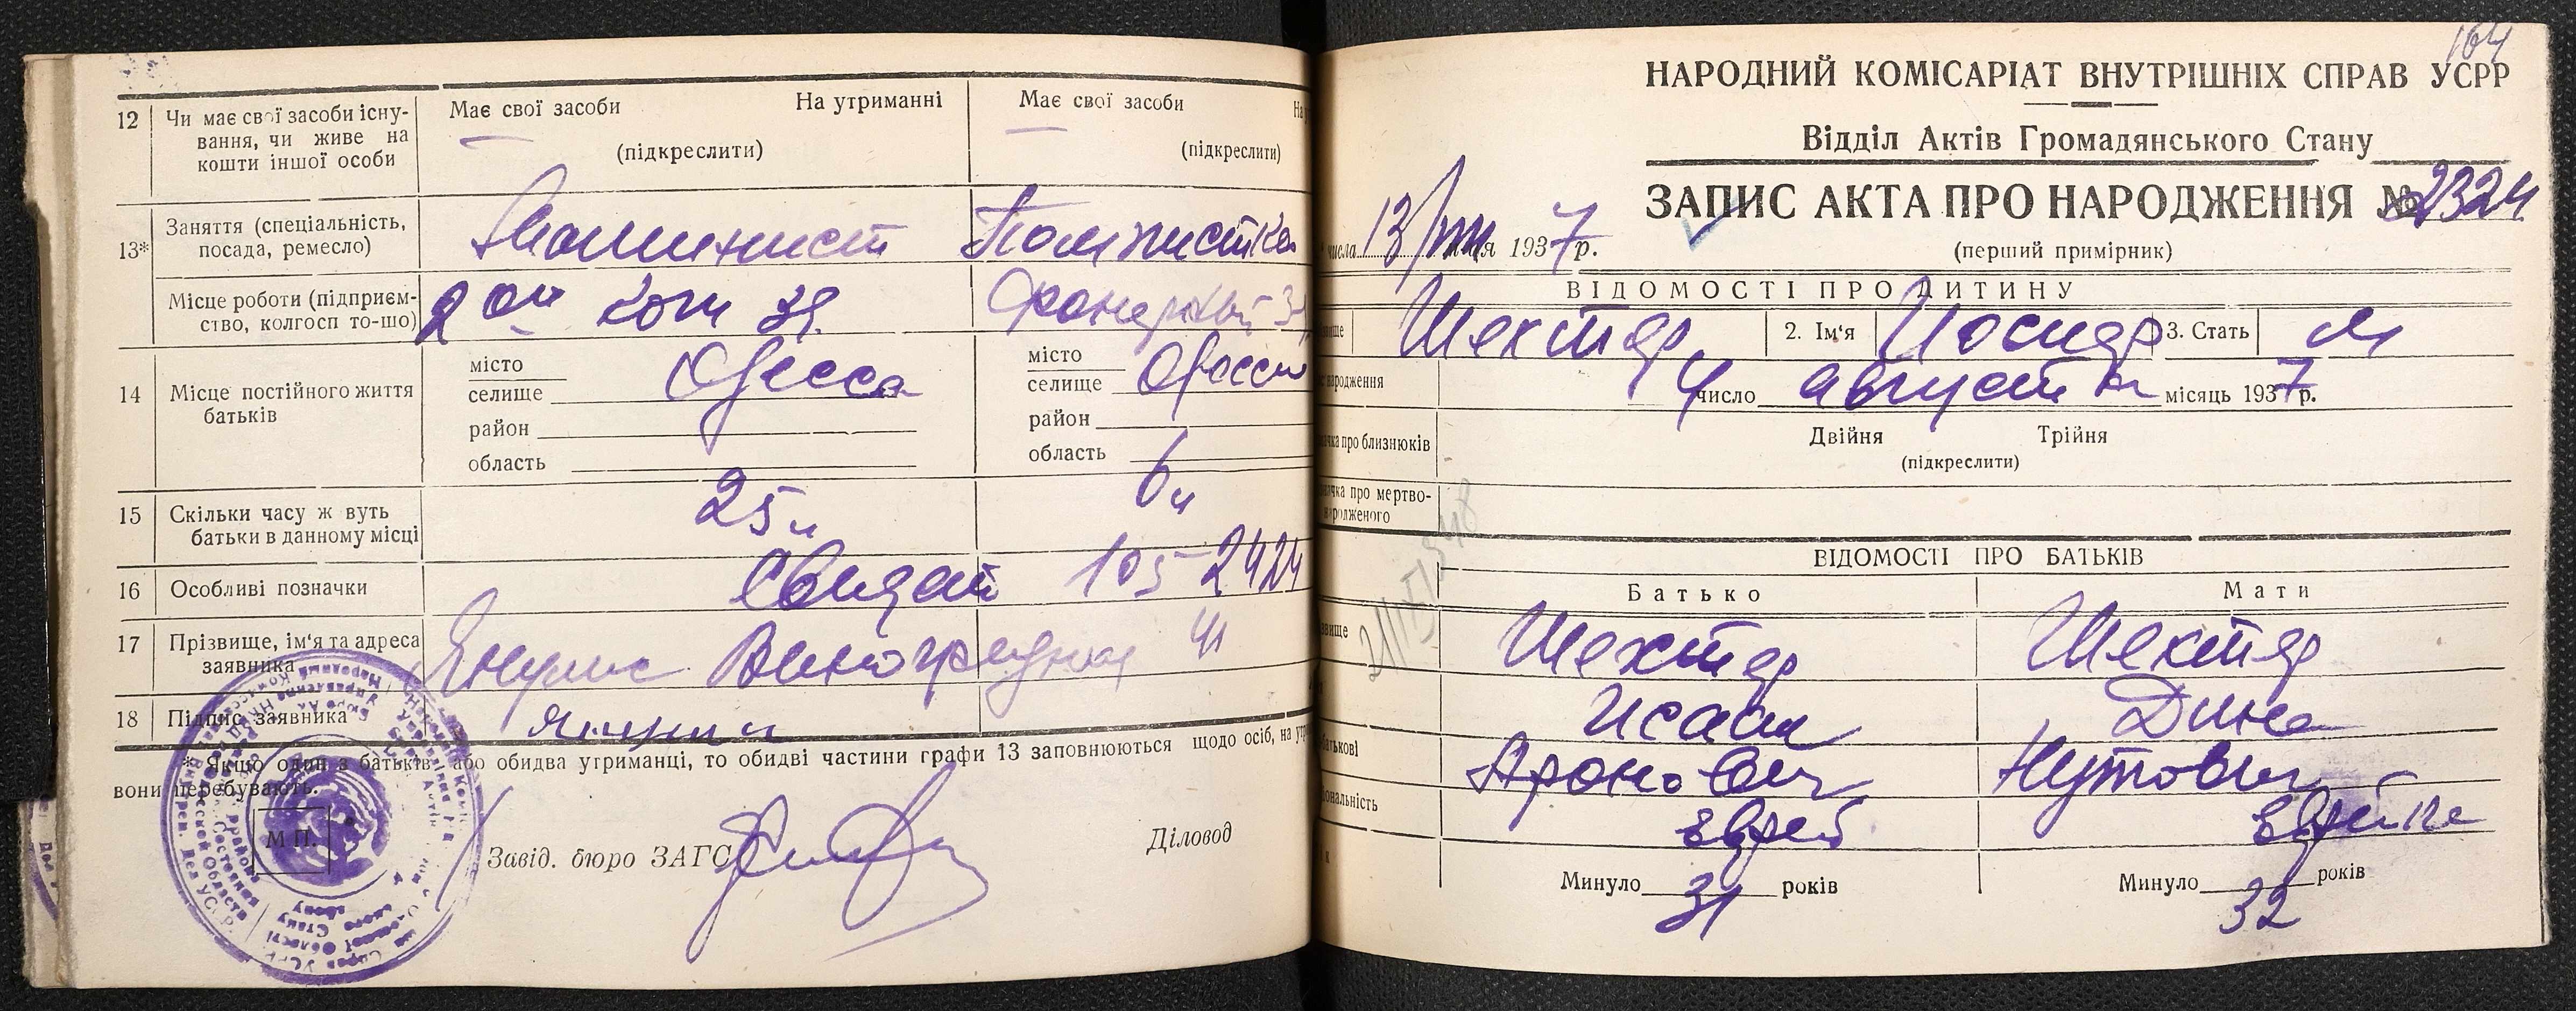 12 Чи має свої засоби існу-
вання, чи живе на
кошти іншої особи
Має свої засоби На утриманні
(підкреслити)
Має свої засоби
(підкреслити)
13* Заняття (спеціальність,
посада, ремесло)
Машинист
Місце роботи (підприєм-
ство, колгосп то-що)
14 Місце постійного життя
батьків
місто
селище
район
область
Одесса
місто
селище
район
область
Одесса
15 Скільки часу ж вуть
батьки в данному місці
25 л
6 л
16 Особливі позначки
105 2424
17 Прізвище, ім'я та адреса
заявника
18 Підпис заявника
* Якщо один з батьків або обидва утриманці, то обидві частини графи 13 заповнюються щодо осіб, на
вони перебувають.
М П.
Завід. бюро ЗАГС
Діловод
164
НАРОДНИЙ КОМІСАРІАТ ВНУТРІШНІХ СПРАВ УСРР
Відділ Актів Громадянського Стану
ЗАПИС АКТА ПРО НАРОДЖЕННЯ № 2324
(перший примірник)
числа 13/VIII 1937 р.
ВІДОМОСТІ ПРО ДИТИНУ
Шехтер
2. Ім'я Иосиф
3. Стать м
народження
4 число августа місяць 1937 р.
про близнюків
Двійня Трійня
(підкреслити)
про мертво-
ВІДОМОСТІ ПРО БАТЬКІВ
Батько Мати
Шехтер Шехтер
Исаак Дина
Аронович Нутовн
еврей еврейка
Минуло 31 років
Минуло 32 років